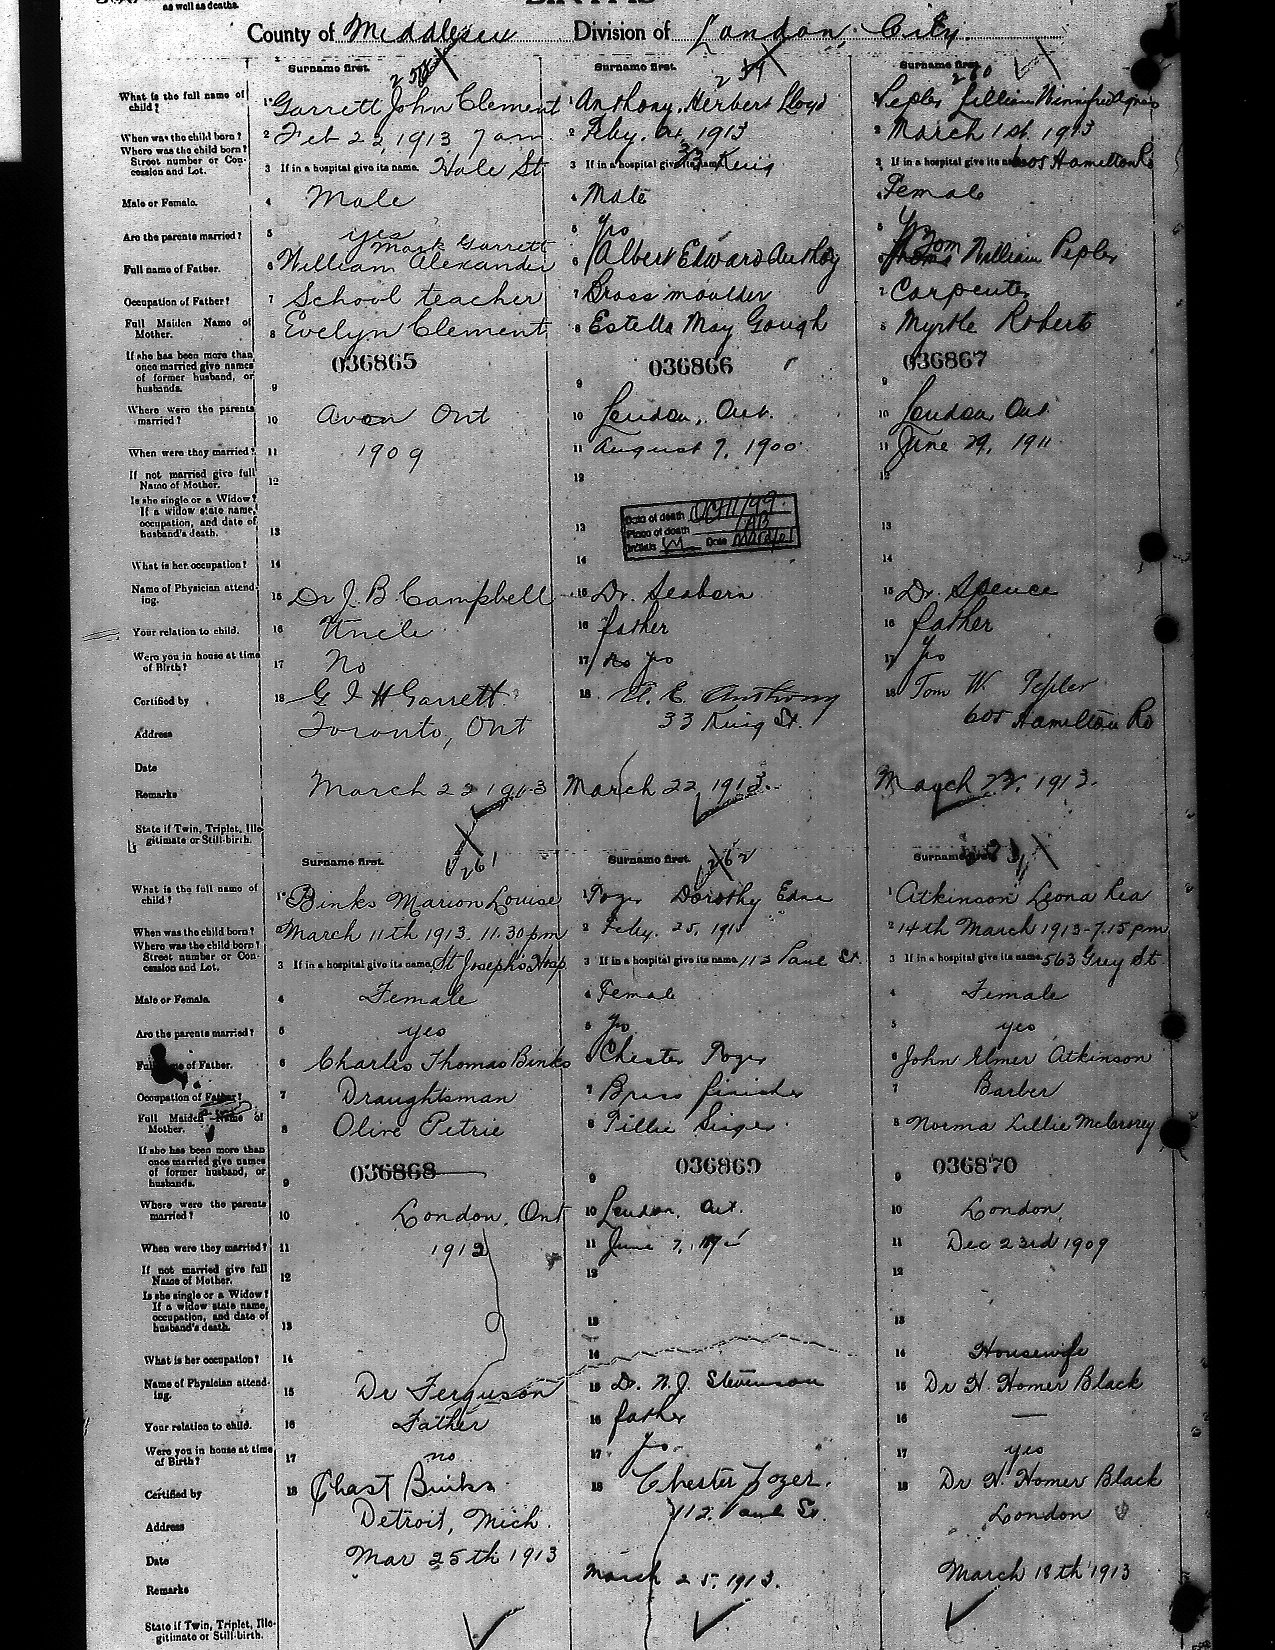 as well as deaths.
BIRTHS
County of Middlesex Division of London City.
Surname first. Surname first. Surname first.
258 259 260
What is the full name of child? 1 Garrett John Clement 1 Anthony Herbert Lloyd 1 Pepler Lillian Winnifred Agnes
When was the child born? 2 Feb 22, 1913 7 am 2 Feby. 1913 2 March 1st 1913
Where was the child born? Street number or Concession and Lot. 3 If in a hospital give its name. Hale St. 3 If in a hospital give its name. 33 King 3 If in a hospital give its name 605 Hamilton Rd
Male or Female. 4 Male 4 Male 4 Female
Are the parents married? 5 yes 5 yes 5 yes
Full name of Father. 6 William Alexander Mark Garrett 6 Albert Edward Anthony 6 Tom William Pepler
Occupation of Father? 7 School teacher 7 Brass moulder 7 Carpenter
Full Maiden Name of Mother. 8 Evelyn Clement 8 Estella May Gough 8 Myrtle Roberts
036865 036866 036867
If she has been more than once married give names of former husband, or husbands. 9 9 9
Where were the parents married? 10 Avon Ont 10 London, Ont. 10 London Ont
When were they married? 11 1909 11 August 7, 1900 11 June 29, 1911
If not married give full Name of Mother. 12 12 12
Is she single or a Widow? If a widow state name, occupation, and date of husband's death. 13 13 13
Date of death Oct 11/99
Place of death
Initials Date
What is her occupation? 14 14 14
Name of Physician attending. 15 Dr J. B. Campbell 15 Dr. Seaborn 15 Dr. Spence
Your relation to child. 16 Uncle 16 father 16 father
Were you in house at time of Birth? 17 No 17 no yes 17 yes
Certified by 18 G I H Garrett 18 A. E. Anthony 18 Tom W. Pepler
Address Toronto, Ont 33 King St. 605 Hamilton Rd
Date
Remarks March 22 1913 March 22 1913. March 22, 1913.
State if Twin, Triplet, Illegitimate or Still-birth.
Surname first. Surname first. Surname first.
261 262
What is the full name of child? 1 Binks Marion Louise 1 Dorothy Edna 1 Atkinson Leona Rea
When was the child born? 2 March 11th 1913. 11.30 pm 2 Feby. 25, 191 2 14th March 1913-7.15 pm
Where was the child born? Street number or Concession and Lot. 3 If in a hospital give its name. St Joseph's Hosp 3 If in a hospital give its name. 112 Paul St. 3 If in a hospital give its name 563 Grey St
Male or Female. 4 Female 4 Female 4 Female
Are the parents married? 5 yes 5 yes 5 yes
Full name of Father. 6 Charles Thomas Binks 6 Chester 6 John Elmer Atkinson
Occupation of Father? 7 Draughtsman 7 Brass finisher 7 Barber
Full Maiden Name of Mother. 8 Olive Petrie 8 Tillie 8 Norma Lillie
036868 036869 036870
If she has been more than once married give names of former husband, or husbands. 9 9 9
Where were the parents married? 10 London, Ont 10 London, Ont. 10 London,
When were they married? 11 1912 11 June 7, 11 Dec 23rd 1909
If not married give full Name of Mother. 12 12 12
Is she single or a Widow? If a widow state name, occupation, and date of husband's death. 13 13 13
What is her occupation? 14 14 14 Housewife
Name of Physician attending. 15 Dr Ferguson 15 Dr. N. J. Stevenson 15 Dr H. Homer Black
Your relation to child. 16 Father 16 father 16 —
Were you in house at time of Birth? 17 no 17 yes. 17 yes
Certified by 18 Chas T Binks 18 Chester 18 Dr H. Homer Black
Address Detroit, Mich. 112 Paul St. London
Date Mar 25th 1913 March 25, 1913. March 18th 1913
Remarks
State if Twin, Triplet, Illegitimate or Still-birth.